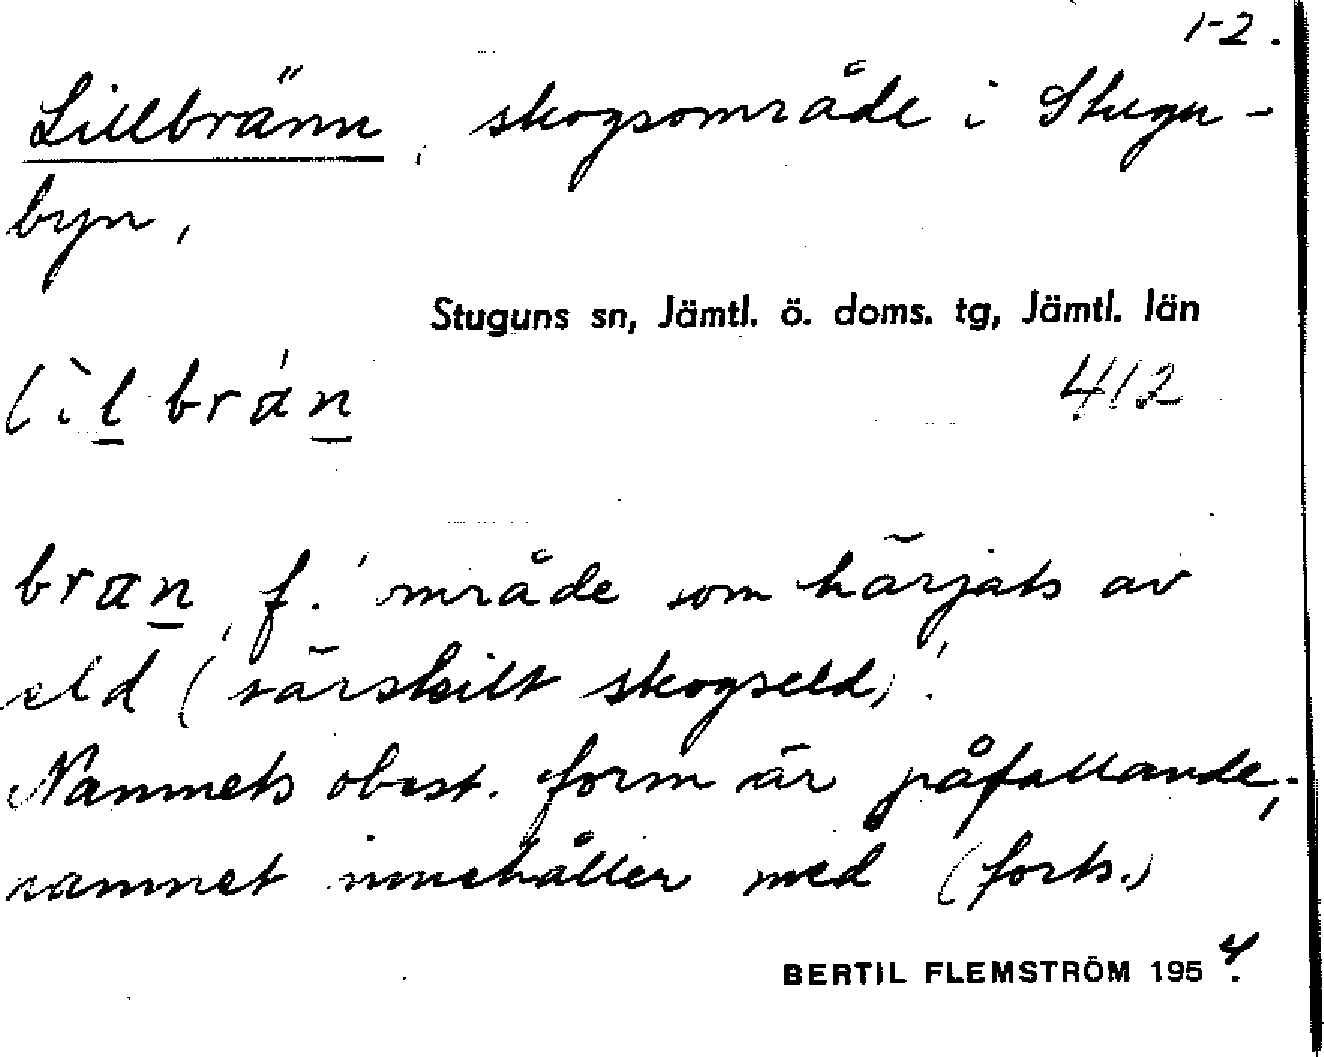 1-2.
Lillbränn, skogsområde i Stugu-
byn,
Stuguns sn, Jämtl. ö. doms. tg, Jämtl. län
412
bran, f. 'område som härjats av
eld (särskilt skogseld)'.
Namnets obest. form är påfallande;
namnet innehåller med (forts.)
BERTIL FLEMSTRÖM 1954.